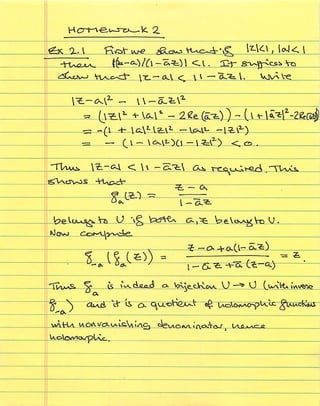 Homework 2
Ex 2.1 First we show that if |z|<1, |a|<1
then |(z-a)/(1-āz)| < 1. It suffices to
show that |z-a| < |1-āz|. Write
|z-a|² - |1-āz|²
= (|z|² + |a|² - 2Re(āz)) - (1+|āz|²-2Re(āz))
= -(1 + |a|²|z|² - |a|² - |z|²)
= - (1-|a|²)(1-|z|²) < 0.
Thus |z-a| < |1-āz| as required. This
shows that
g_a(z) = (z-a)/(1-āz)
belongs to U if both a,z belong to U.
Now compute
g_-a(g_a(z)) = (z-a+a(1-āz))/(1-āz+ā(z-a)) = z.
Thus g_a is indeed a bijection U→U (with inverse
g_-a) and it is a quotient of holomorphic functions
with nonvanishing denominator, hence
holomorphic.